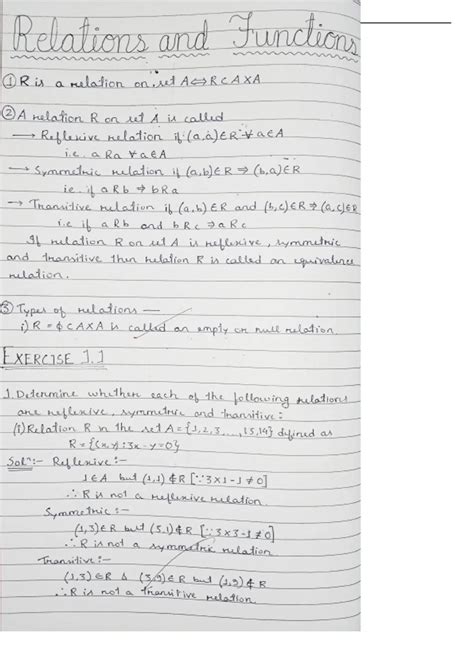 Relations and Functions
① R is a relation on set A⇔R⊂A×A
② A relation R on set A is called
→ Reflexive relation if (a,a)∈R ∀ a∈A
i.e. a Ra ∀ a∈A
→ Symmetric relation if (a,b)∈R ⇒ (b,a)∈R
ie. if aRb ⇒ bRa
→ Transitive relation if (a,b)∈R and (b,c)∈R ⇒ (a,c)∈R
i.e if aRb and bRc ⇒ aRc
If relation R on set A is reflexive, symmetric
and transitive then relation R is called an equivalence
relation.
③ Types of relations —
i) R = ϕ ⊂ A×A is called an empty or null relation.
EXERCISE 1.1
1. Determine whether each of the following relations
are reflexive, symmetric and transitive:
(i) Relation R in the set A = {1,2,3...,15,14} defined as
R = {(x,y):3x-y=0}
Solⁿ:- Reflexive:-
1∈A but (1,1)∉R [∵3×1-1≠0]
∴ R is not a reflexive relation.
Symmetric:-
(1,3)∈R but (3,1)∉R [∵3×3-1≠0]
∴ R is not a symmetric relation
Transitive:-
(1,3)∈R & (3,9)∈R but (1,9)∉R
∴ R is not a transitive relation.